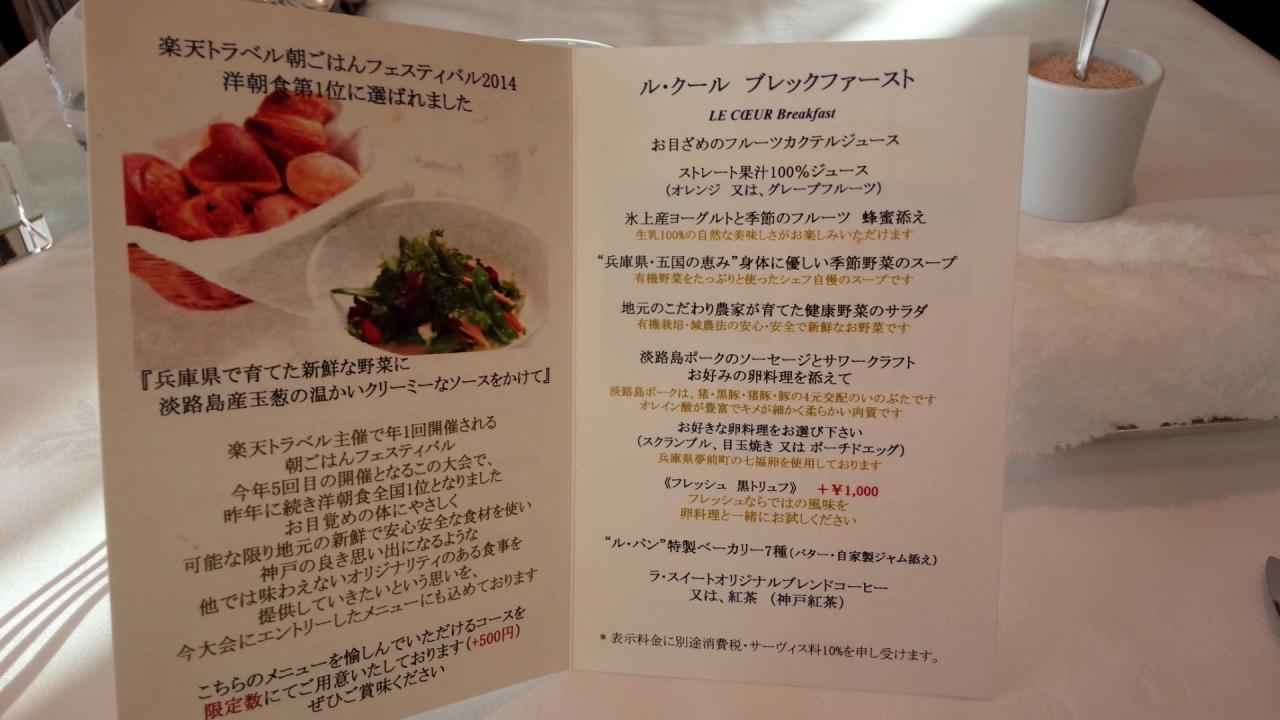 楽天トラベル朝ごはんフェスティバル2014
洋朝食第1位に選ばれました
『兵庫県で育てた新鮮な野菜に
淡路島産玉葱の温かいクリーミーなソースをかけて』
楽天トラベル主催で年1回開催される
朝ごはんフェスティバル
今年5回目の開催となるこの大会で、
昨年に続き洋朝食全国1位となりました
お目覚めの体にやさしく
可能な限り地元の新鮮で安心安全な食材を使い
神戸の良き思い出になるような
他では味わえないオリジナリティのある食事を
提供していきたいという思いを、
今大会にエントリーしたメニューにも込めております
こちらのメニューを愉しんでいただけるコースを
限定数にてご用意いたしております(+500円)
ぜひご賞味ください
ル・クール ブレックファースト
LE CŒUR Breakfast
お目ざめのフルーツカクテルジュース
ストレート果汁100%ジュース
(オレンジ 又は、グレープフルーツ)
氷上産ヨーグルトと季節のフルーツ 蜂蜜添え
生乳100%の自然な美味しさがお楽しみいただけます
“兵庫県・五国の恵み”身体に優しい季節野菜のスープ
有機野菜をたっぷりと使ったシェフ自慢のスープです
地元のこだわり農家が育てた健康野菜のサラダ
有機栽培・減農法の安心・安全で新鮮なお野菜です
淡路島ポークのソーセージとサワークラフト
お好みの卵料理を添えて
淡路島ポークは、猪・黒豚・猪豚・豚の4元交配のいのぶたです
オレイン酸が豊富でキメが細かく柔らかい肉質です
お好きな卵料理をお選び下さい
(スクランブル、目玉焼き 又は ポーチドエッグ)
兵庫県夢前町の七福卵を使用しております
《フレッシュ 黒トリュフ》 +￥1,000
フレッシュならではの風味を
卵料理と一緒にお試しください
“ル・パン”特製ベーカリー7種(バター・自家製ジャム添え)
ラ・スイートオリジナルブレンドコーヒー
又は、紅茶 (神戸紅茶)
* 表示料金に別途消費税・サーヴィス料10%を申し受けます。